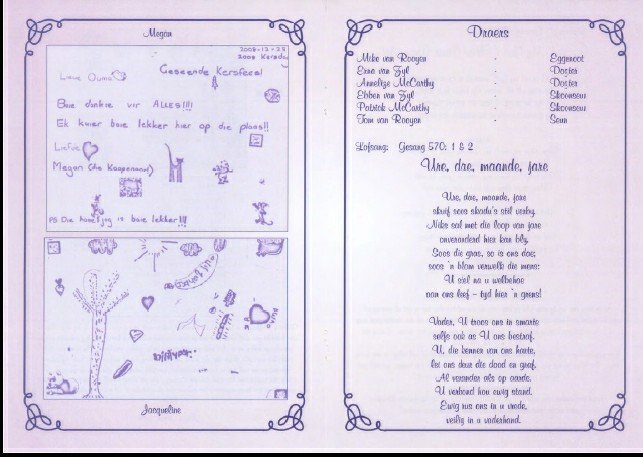 Megan
2008-12-25
2008 Kersdag
Liewe Ouma
Geseende Kersfees!
Baie dankie vir ALLES!!!!
Ek kuier baie lekker hier op die plaas!!
Liefde
Megan (die Kaapenaar)
PS Die is baie lekker!!!
Jacqueline
Draers
Mike van Rooyen : Eggenoot
Erna van Zyl : Dogter
Annelize McCarthy : Dogter
Ebben van Zyl : Skoonseun
Patrick McCarthy : Skoonseun
Tom van Rooyen : Seun
Lofsang: Gesang 570: 1 & 2
Ure, dae, maande, jare
Ure, dae, maande, jare
skuif soos skadu's stil verby.
Niks sal met die loop van jare
onveranderd hier kan bly.
Soos die gras, so is ons dae;
soos 'n blom verwelk die mens:
U stel na u welbehae
aan ons leef - tyd hier 'n grens!
Vader, U troos ons in smarte
selfs ook as U ons bestraf.
U, die kenner van ons harte,
lei ons deur die dood en graf.
Al verander als op aarde,
U verbond hou ewig stand.
Ewig rus ons in u vrede,
veilig in u vaderhand.